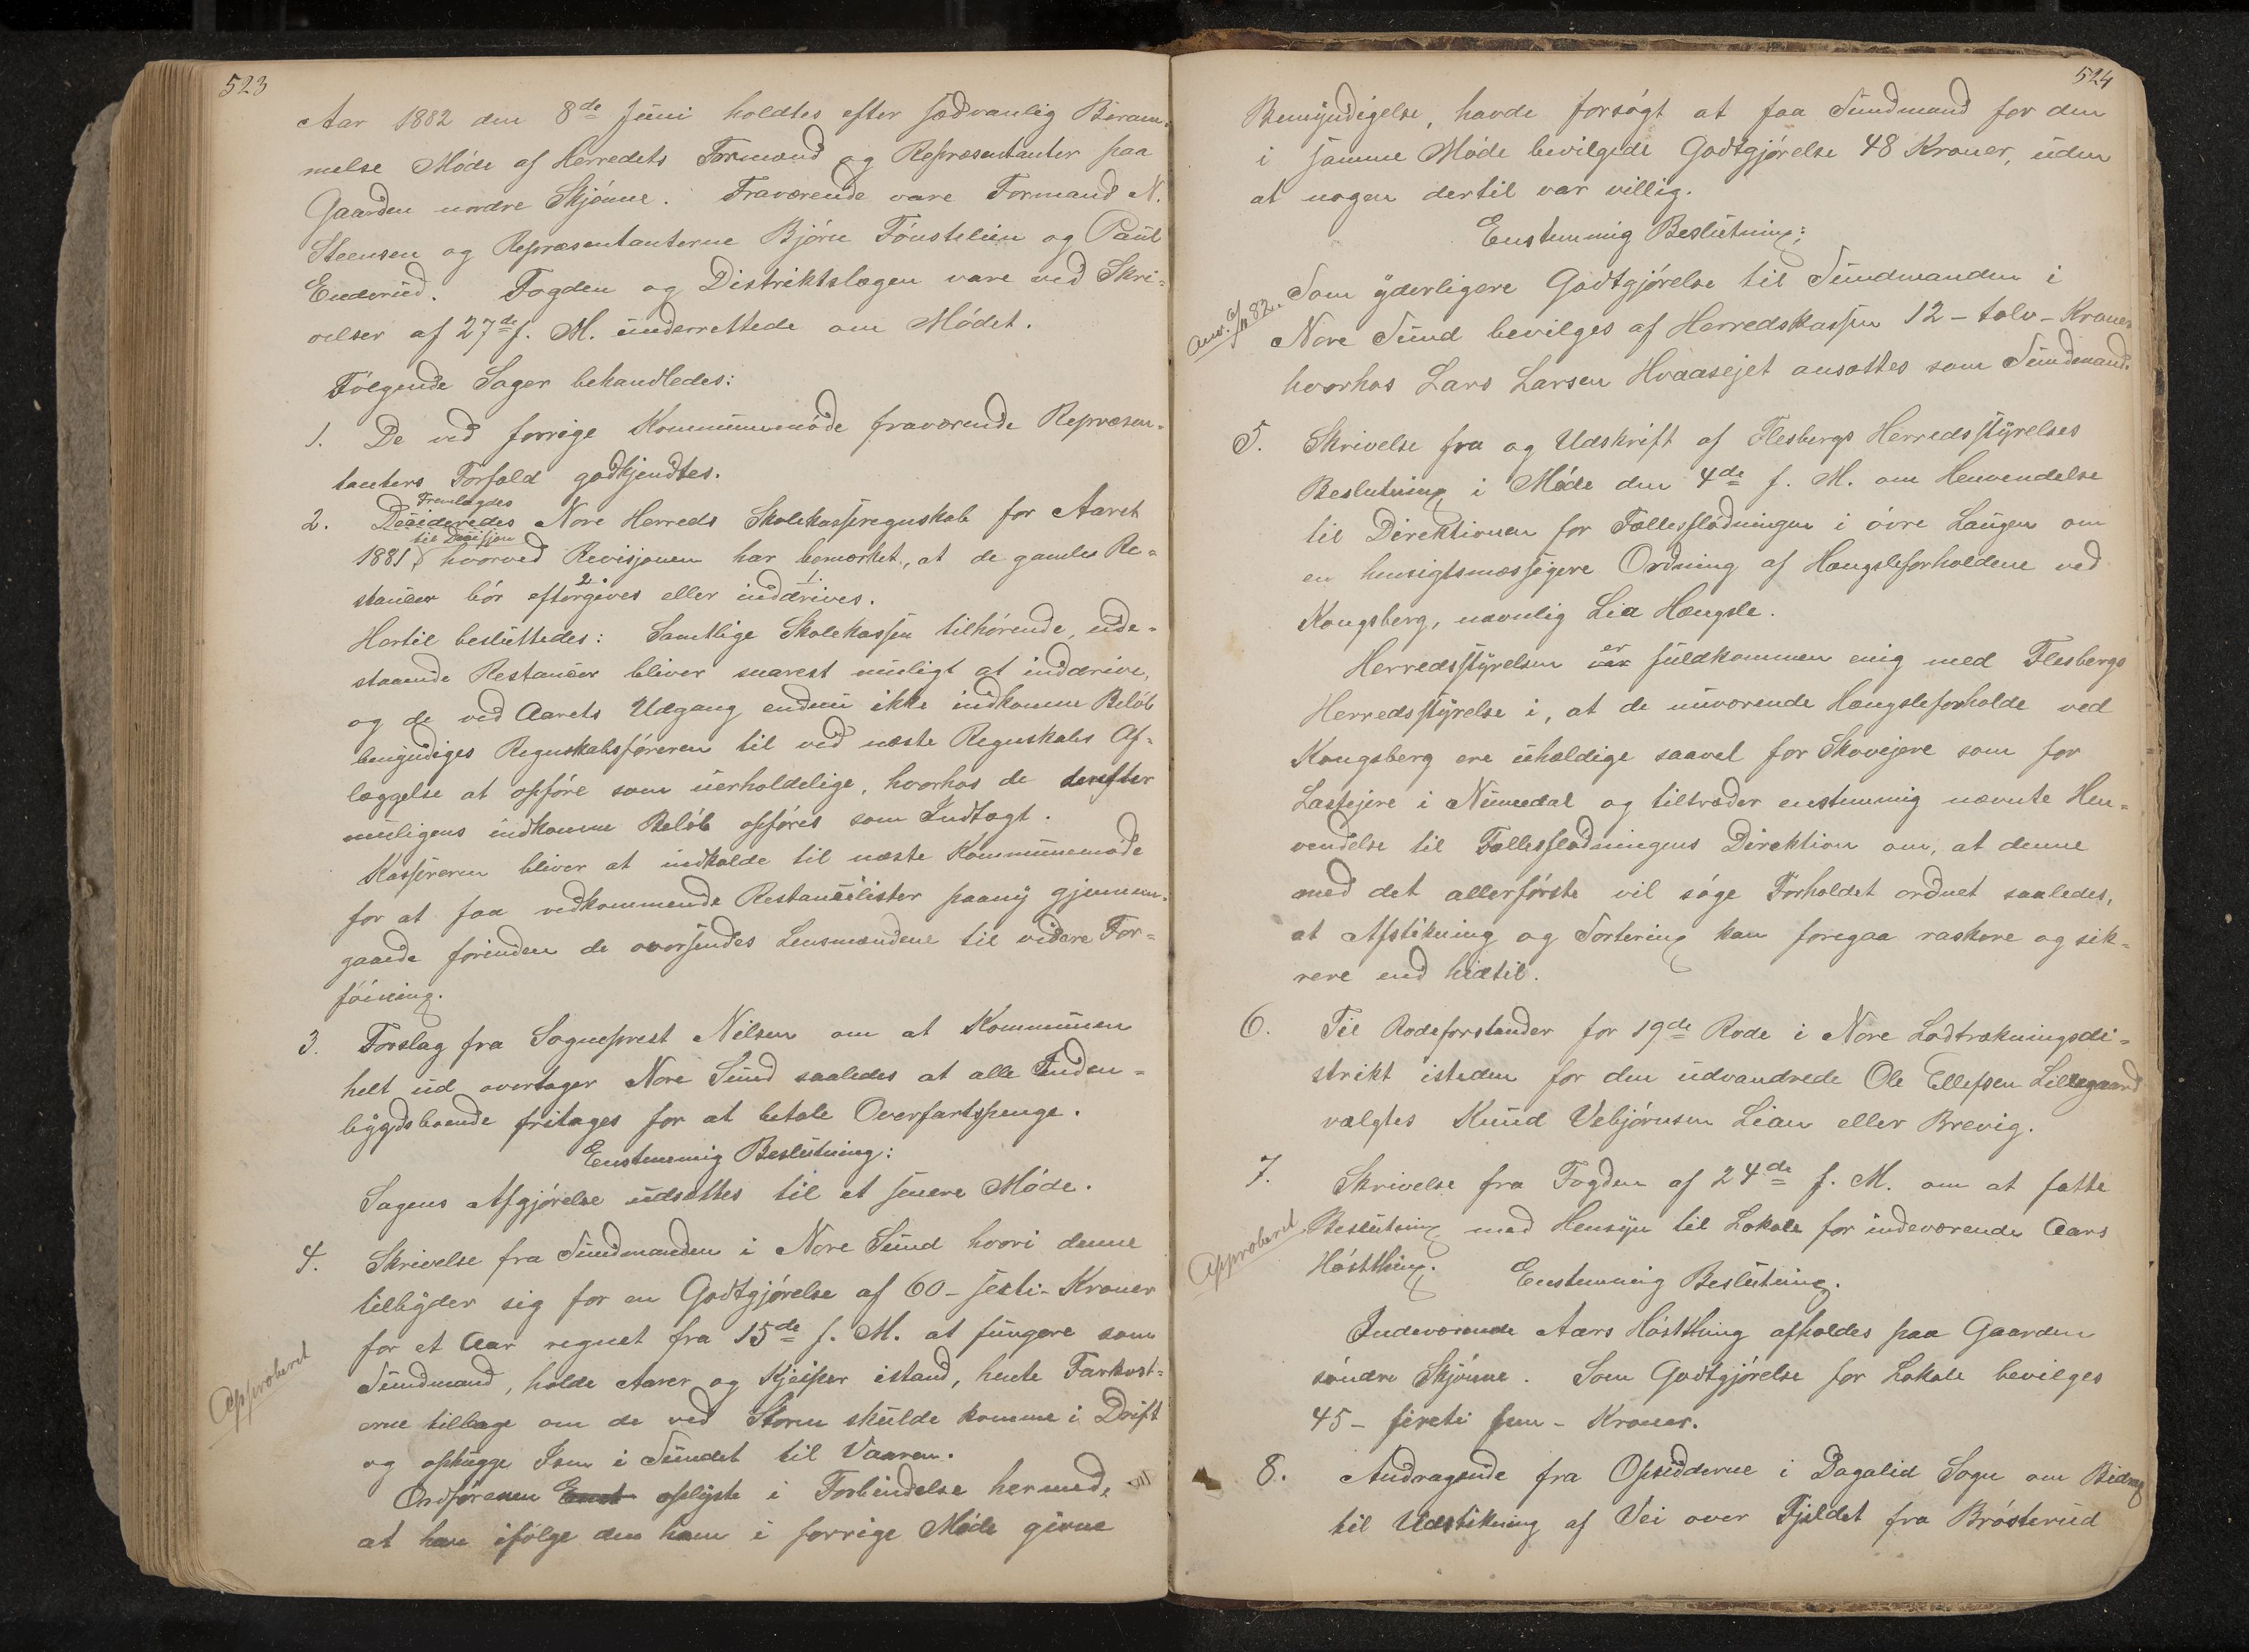 523
Aar 1882 den 8de Juni holdtes efter sædvanlig Beram-
melse Møde af Herredets Formænd og Repræsentanter paa
Gaarden nordre Skjønne. Fraværende vare Formand N.
Steensen og Repræsentanterne Bjørn Fønstelien og Paul
Enderud. Fogden og Distriktslægen vare ved Skri-
velser af 27de f. M. underrettede om Mødet.
Følgende Sager behandledes:
1. De ved forrige Kommunemøde fraværende Repræsen-
tanters Forfald godkjendtes.
Fremlagdes
2. Decideredes Nore Herreds Skolekasseregnskab for Aaret
til Decisjon
1881, hvorved Revisjonen har bemærket, at de gamle Re-
stancer bør eftergives eller inddrives.
Hertil besluttedes: Samtlige Skolekassen tilhørende, ude-
staaende Restancer bliver snarest muligt at inddrive,
og de ved Aarets Udgang endnu ikke indkomne Beløb
bemyndiges Regnskabsføreren til ved næste Regnskabs Af-
læggelse at opføre som uerholdelige, hvorhos de derefter
muligens indkomne Beløb opføres som Indtægt.
Kassereren bliver at indkalde til næste Kommunemøde
for at faa vedkommende Restancelister paany gjennem-
gaaede førinden de oversendes Lensmændene til videre For-
føining.
3. Forslag fra Sogneprest Nilsen om at Kommunen
helt ud overtager Nore Sund saaledes at alle Inden-
bygdsboende fritages for at betale Overfartspenge.
Enstemmig Beslutning:
Sagens Afgjørelse udsættes til et senere Møde.
4. Skrivelse fra Sundmanden i Nore Sund hvori denne
tilbyder sig for en Godtgjørelse af 60 - sexti - Kroner
for et Aar regnet fra 15de f. M. at fungere som
Approberet
Sundmand, holde Aarer og Kjeiper istand, hente Farkost-
erne tilbage om de ved Storm skulde komme i Drift
og ophugge Isen i Sundet til Vaaren.
Ordføreren oplyste i Forbindelse hermed,
at han ifølge den ham i forrige Møde givne
524
Bemyndigelse, havde forsøgt at faa Sundmand for den
i samme Møde bevilgede Godtgjørelse 48 Kroner, uden
at nogen dertil var villig.
Enstemmig Beslutning:
Som yderligere Godtgjørelse til Sundmanden i
Nore Sund bevilges af Herredskassen 12 - tolv - Kroner
hvorhos Lars Larsen Hvaasejet ansættes som Sundmand.
5. Skrivelse fra og Udskrift af Flesbergs Herredsstyrelses
Beslutning i Møde den 4de f. M. om Henvendelse
til Direktionen for Fællesflødningen i øvre Laugen om
en hensigtsmæssigere Ordning af Hængsleforholdene ved
Kongsberg, navnlig Lia Hængsle.
er
Herredsstyrelsen var fuldkommen enig med Flesbergs
Herredsstyrelse i, at de nuværende Hængsleforholde ved
Kongsberg ere uheldige saavel for Skovejere som for
Lastejere i Numedal og tiltræder enstemmig nævnte Hen-
vendelse til Fællesflødningens Direktion om, at denne
med det allerførste vil søge Forholdet ordnet saaledes,
at Afstikning og Sortering kan foregaa raskere og sik-
rere end hidtil.
6. Til Rodeforstander for 19de Rode i Nore Lodtrækningsdi-
strikt isteden for den udvandrede Ole Ellefsen Lillegaard
valgtes Knud Vebjørnsen Lian eller Brevig.
7. Skrivelse fra Fogden af 24de f. M. om at fatte
Approberet
Beslutning med Hensyn til Lokale for indeværende Aars
Høstthing.
Enstemmig Beslutning.
Indeværende Aars Høstthing afholdes paa Gaarden
søndre Skjønne. Som Godtgjørelse for Lokale bevilges
45 - fireti fem - Kroner.
8. Andragende fra Opsidderne i Dagalid Sogn om Bidrag
til Udstikning af Vei over Fjeldet fra Brøsterud